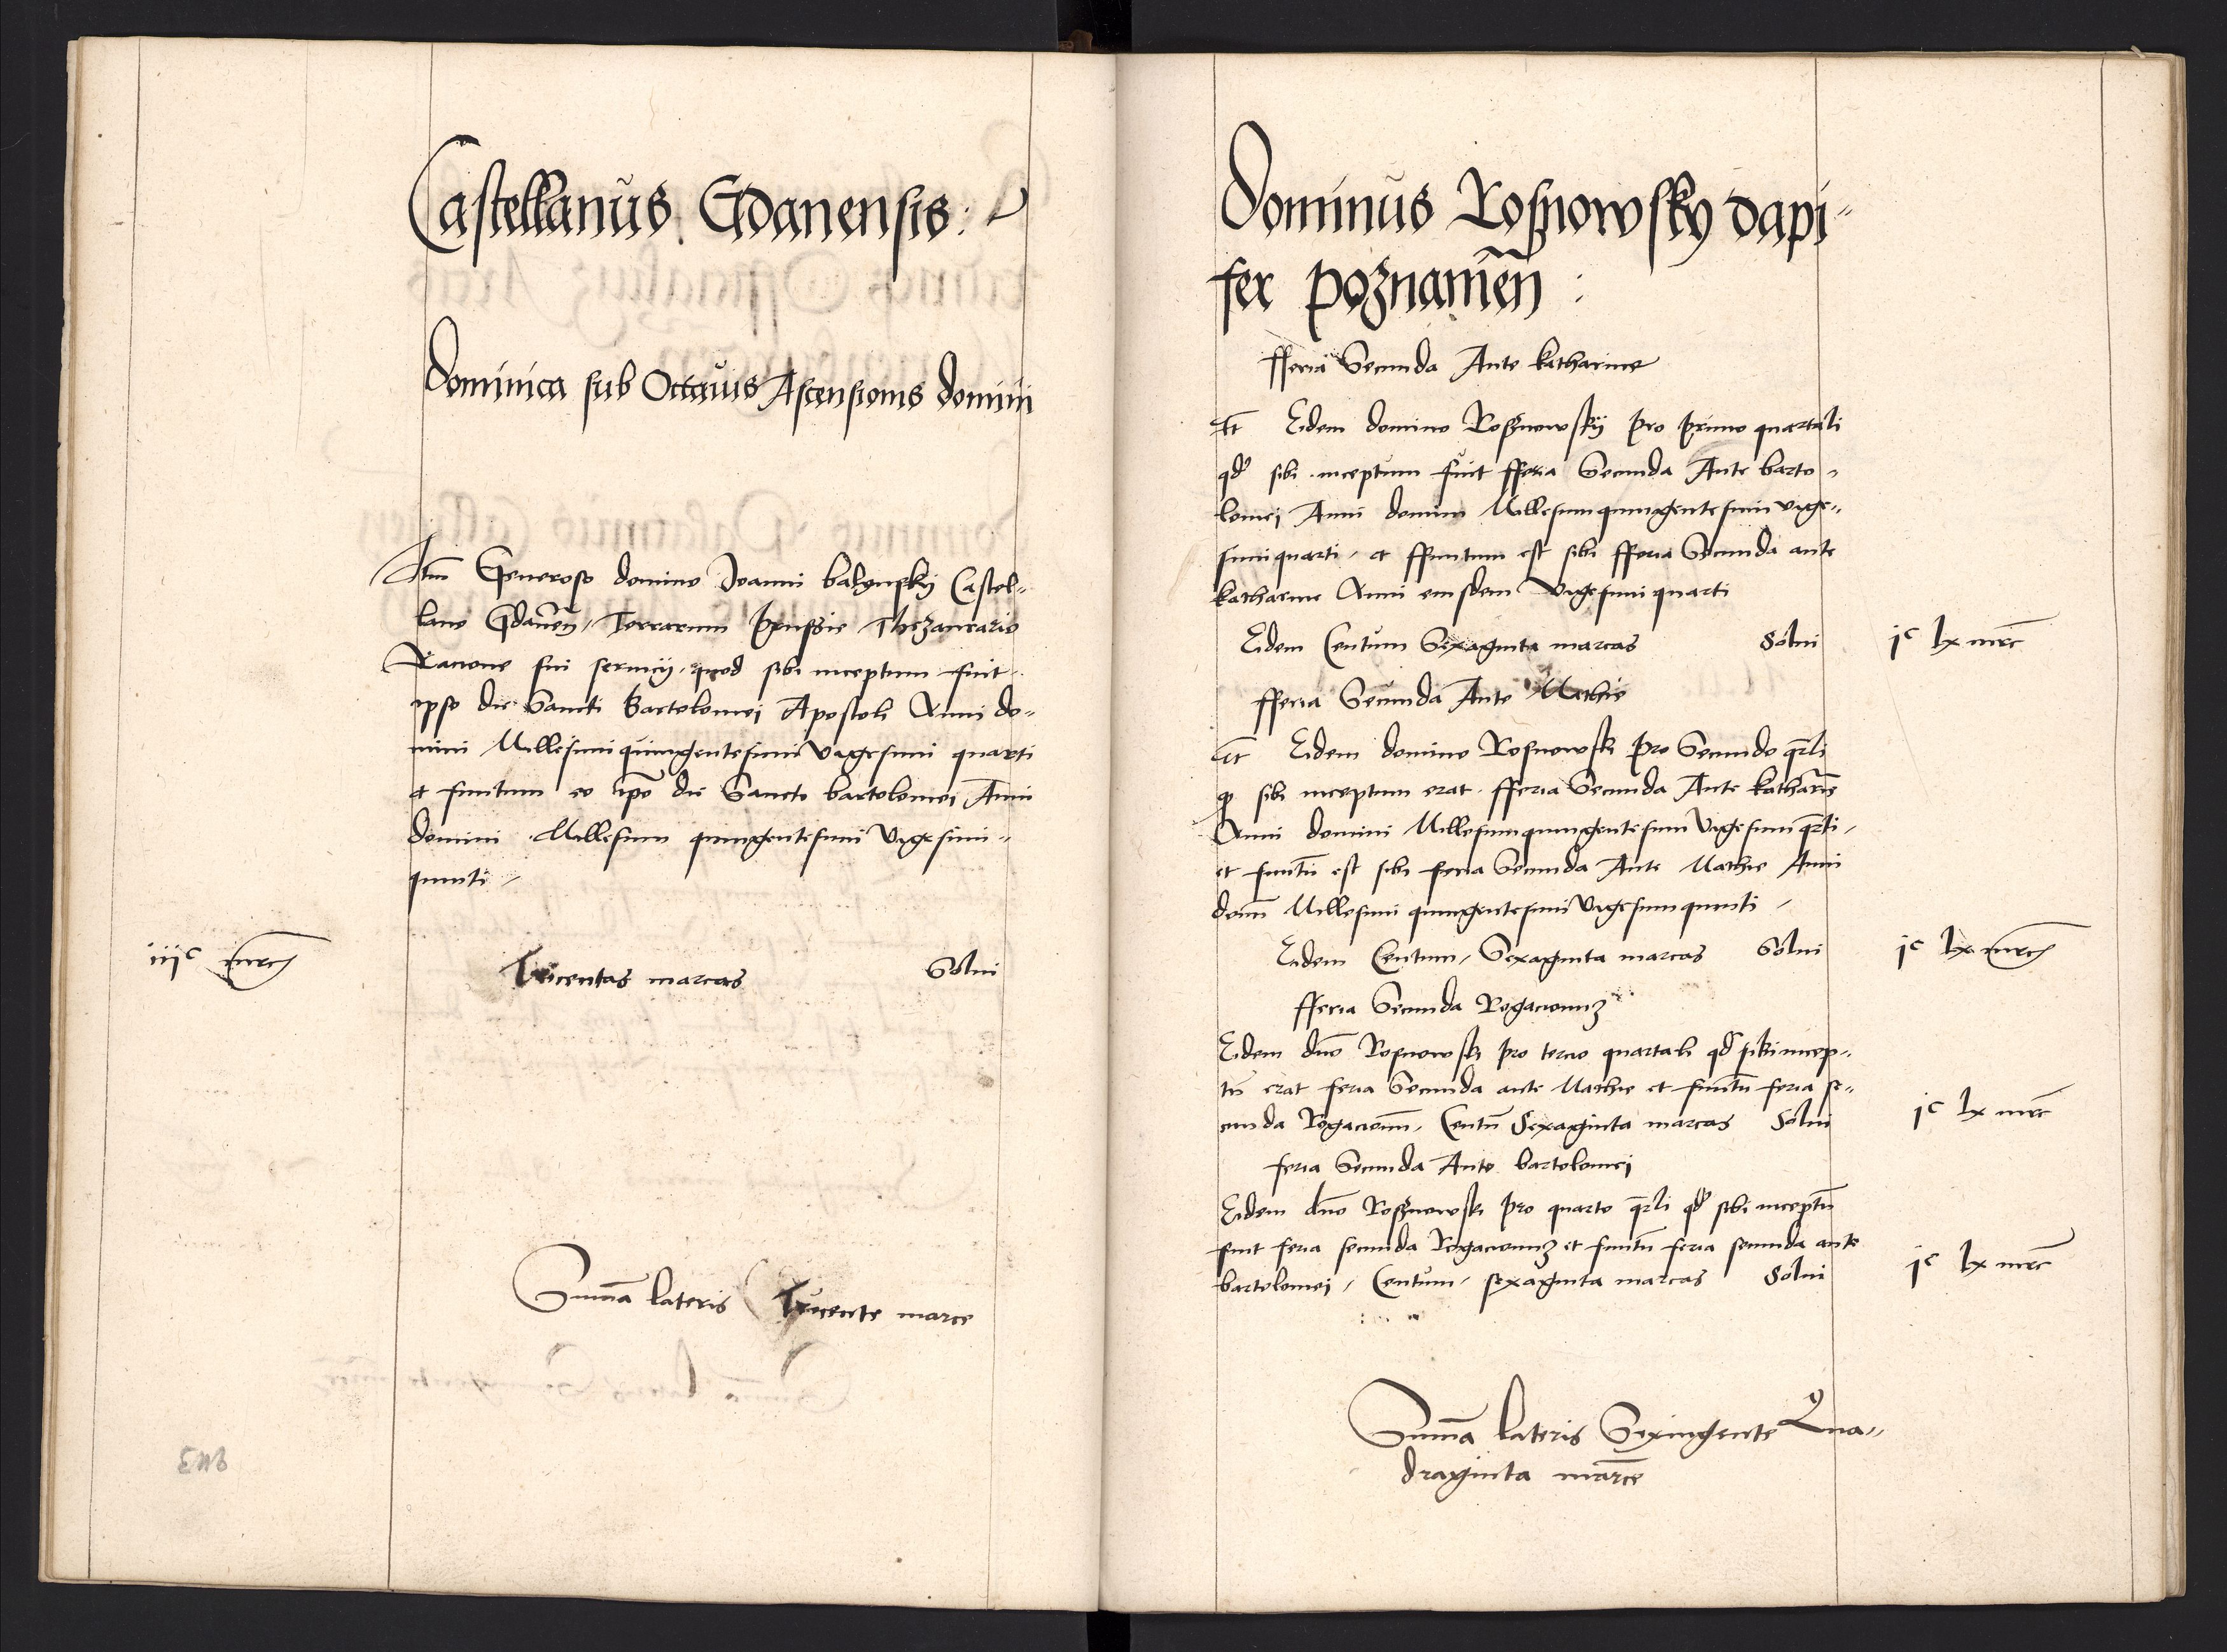 Castellanus Gdanensis:
Dominica sub Octauis Ascensionis domini
Itm Generoso domino Joanni balynskÿ Castel-
lano Gdaneñ, Terrarum Prussie Thezaurario
Racione sui seruicÿ, quod sibi inceptum fuit
ipso die Sancti Bartolomei Apostoli Anni do-
mini Millesimiquingentesimi vigesimi quarti
et finitum eo ipo die Sancto bartolomei Anni
domini Millesimi quingentesimi vigesimi-
quinti
iijc mrc
Tricentas marcas Solui
Summa lateris Tricente marce
Dominus Rosznowsky dapi-
fer poznanieñ:
fferia Secunda Ante katharine
It Eidem domino Rosznowskÿ pro primo quartali
qd sibi inceptum fuit fferia Secunda Ante barto-
lomei Anni domini Millesimiquingentesimi vige-
simiquarti, et ffinitum est sibi fferia Secunda ante
katharine Anni eiusdem vigesimiquarti
Eidem Centum Sexaginta marcas Solui
jc lx mrc
fferia Secunda Ante Mathie
It Eidem domino Rosnowski pro Secundo qrli
q sibi inceptum erat fferia Secunda Ante katharie
Anni domini Millesimiquingentesimi vigesimi qrti,
et finitu est sibi feria Secunda Ante Mathie Anni
domi Millesimi quingentesimi vigesimiquinti
Eidem Centum, Sexaginta marcas Solui
jc lx mrc
fferia Secunda Rogacionuz
Eidem dno Rosnowski pro tercio quartali qd sibi incep-
tu erat feria Secunda ante Mathie et finitu feria se-
cunda Rogacionu, Centu Sexaginta marcas Solui
jc lx mrc
feria Secunda Ante bartolomei
Eidem dno Rosznowski pro quarto qrli qd sibi inceptu
fuit feria secunda Rogacionuz et finitu feria secunda ante
bartolomei, Centum, sexaginta marcas Solui
jc lx mrc
Summa lateris Sexingente Qua-
draginta marce